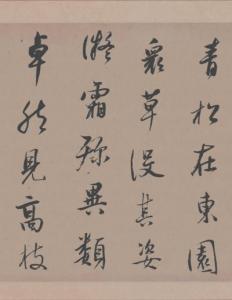 青松在東園
眾草沒其姿
凝霜殄異類
卓然見高枝